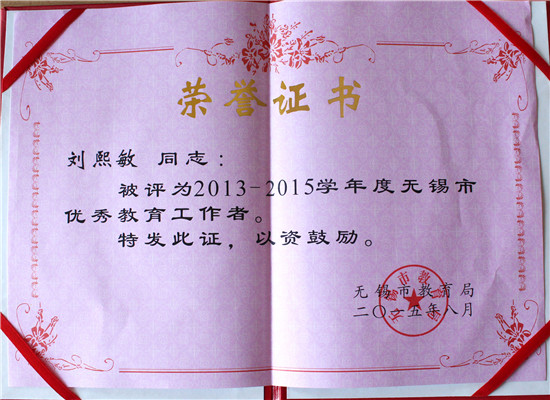 荣誉证书
刘熙敏 同志：
被评为2013-2015学年度无锡市
优秀教育工作者。
特发此证，以资鼓励。
无锡市教育局
二〇一五年八月
无锡市教育局